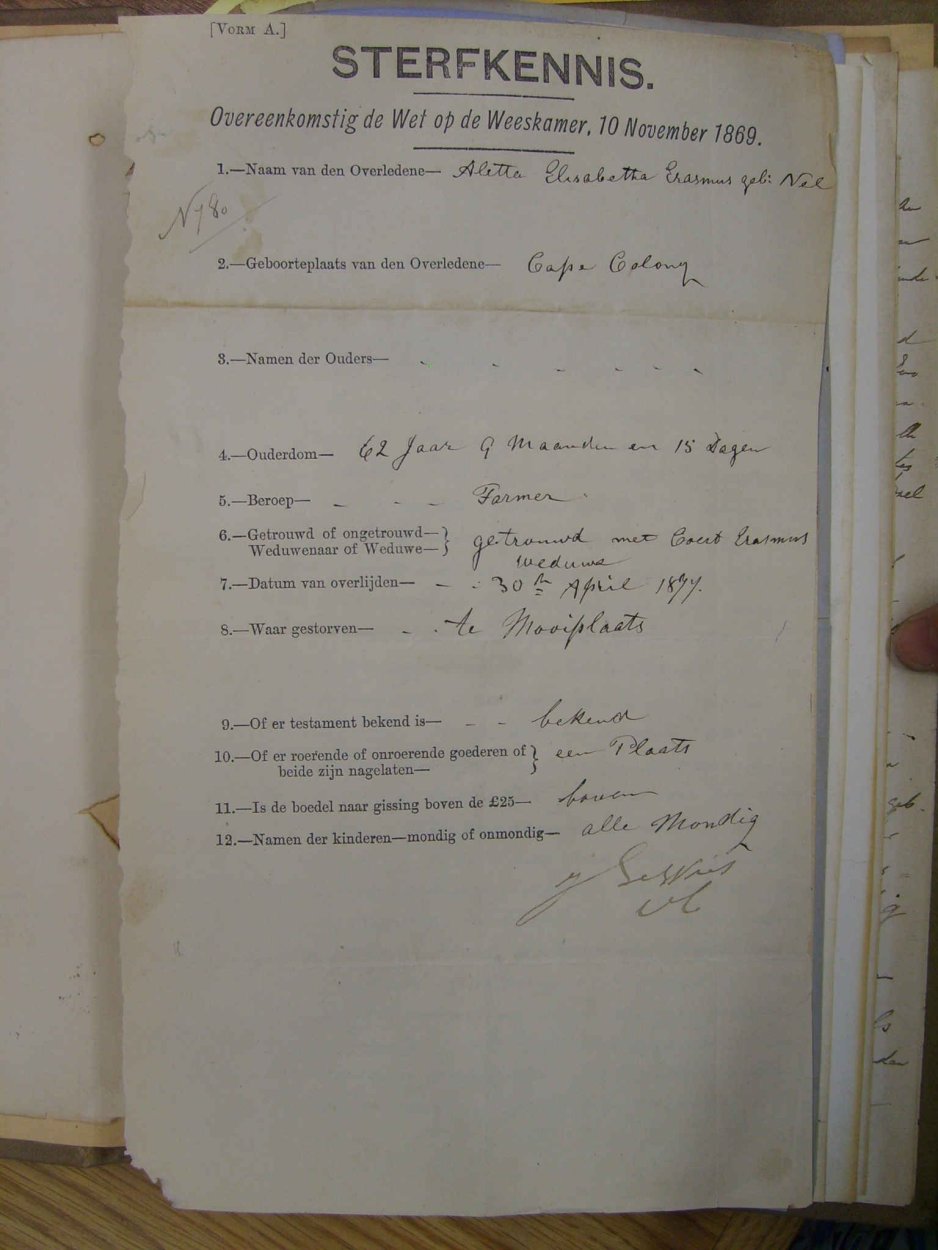 [VORM A.]
STERFKENNIS.
Overeenkomstig de Wet op de Weeskamer, 10 November 1869.
1.—Naam van den Overledene— Aletta Elisabetha Erasmus geb: Nel
2.—Geboorteplaats van den Overledene— Cape Colony
3.—Namen der Ouders—
4.—Ouderdom— 62 Jaar 9 Maanden en 15 Dagen
5.—Beroep— Farmer
6.—Getrouwd of ongetrouwd— } getrouwd met Coert Erasmus
Weduwenaar of Weduwe— } weduwe
7.—Datum van overlijden— 30th April 1877.
8.—Waar gestorven— te Mooiplaats
9.—Of er testament bekend is— bekend
10.—Of er roerende of onroerende goederen of } een Plaats
beide zijn nagelaten— }
11.—Is de boedel naar gissing boven de £25— boven
12.—Namen der kinderen—mondig of onmondig— alle Mondig